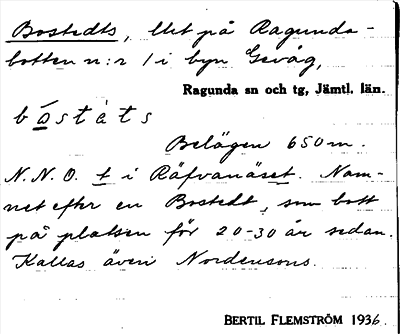 Bostedts, lht på Ragunda-
botten n:r 1 i byn Gevåg,
Ragunda sn och tg, Jämtl. län.
bóstèts
Belägen 650 m.
N.N.O. t i Räfvanäset. Nam-
net efter en Bostedt, som bott
på platsen för 20-30 år sedan.
Kallas även Nordensons.
BERTIL FLEMSTRÖM 1936.